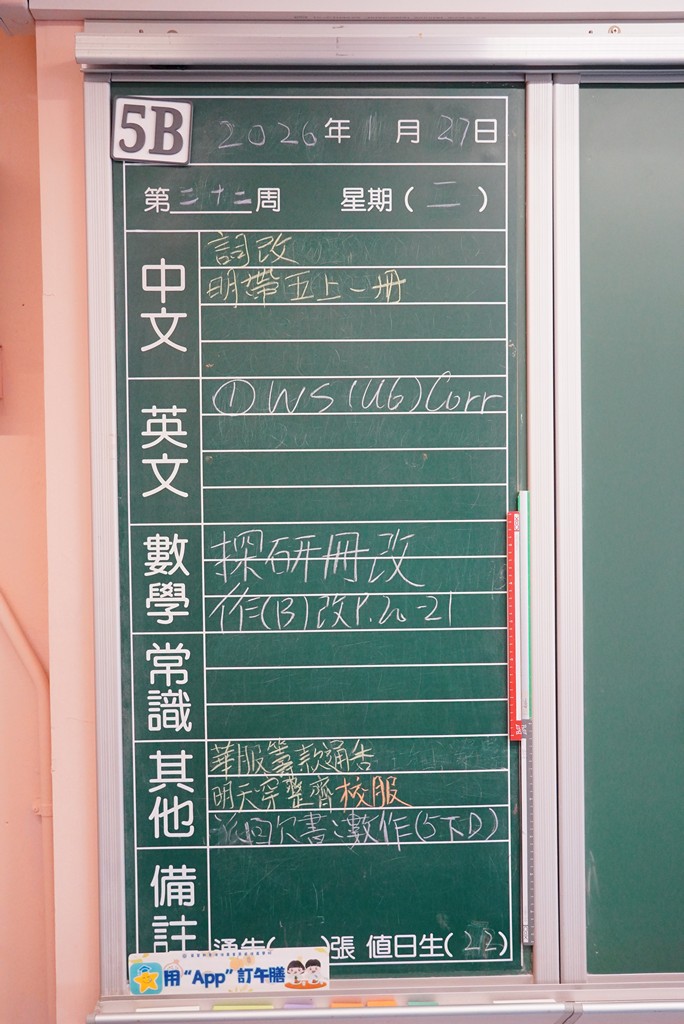 5B 2026年1月27日
第二十二周 星期(二)
中文
詞改
明帶五上一冊
英文
① WS (U6) Corr
數學
探研冊改
作(B)改P.20-21
常識
其他
華服籌款通告
明天穿整齊校服
欠書:數作(5下D)
備註
通告( )張 值日生(22)
用“App”訂午膳